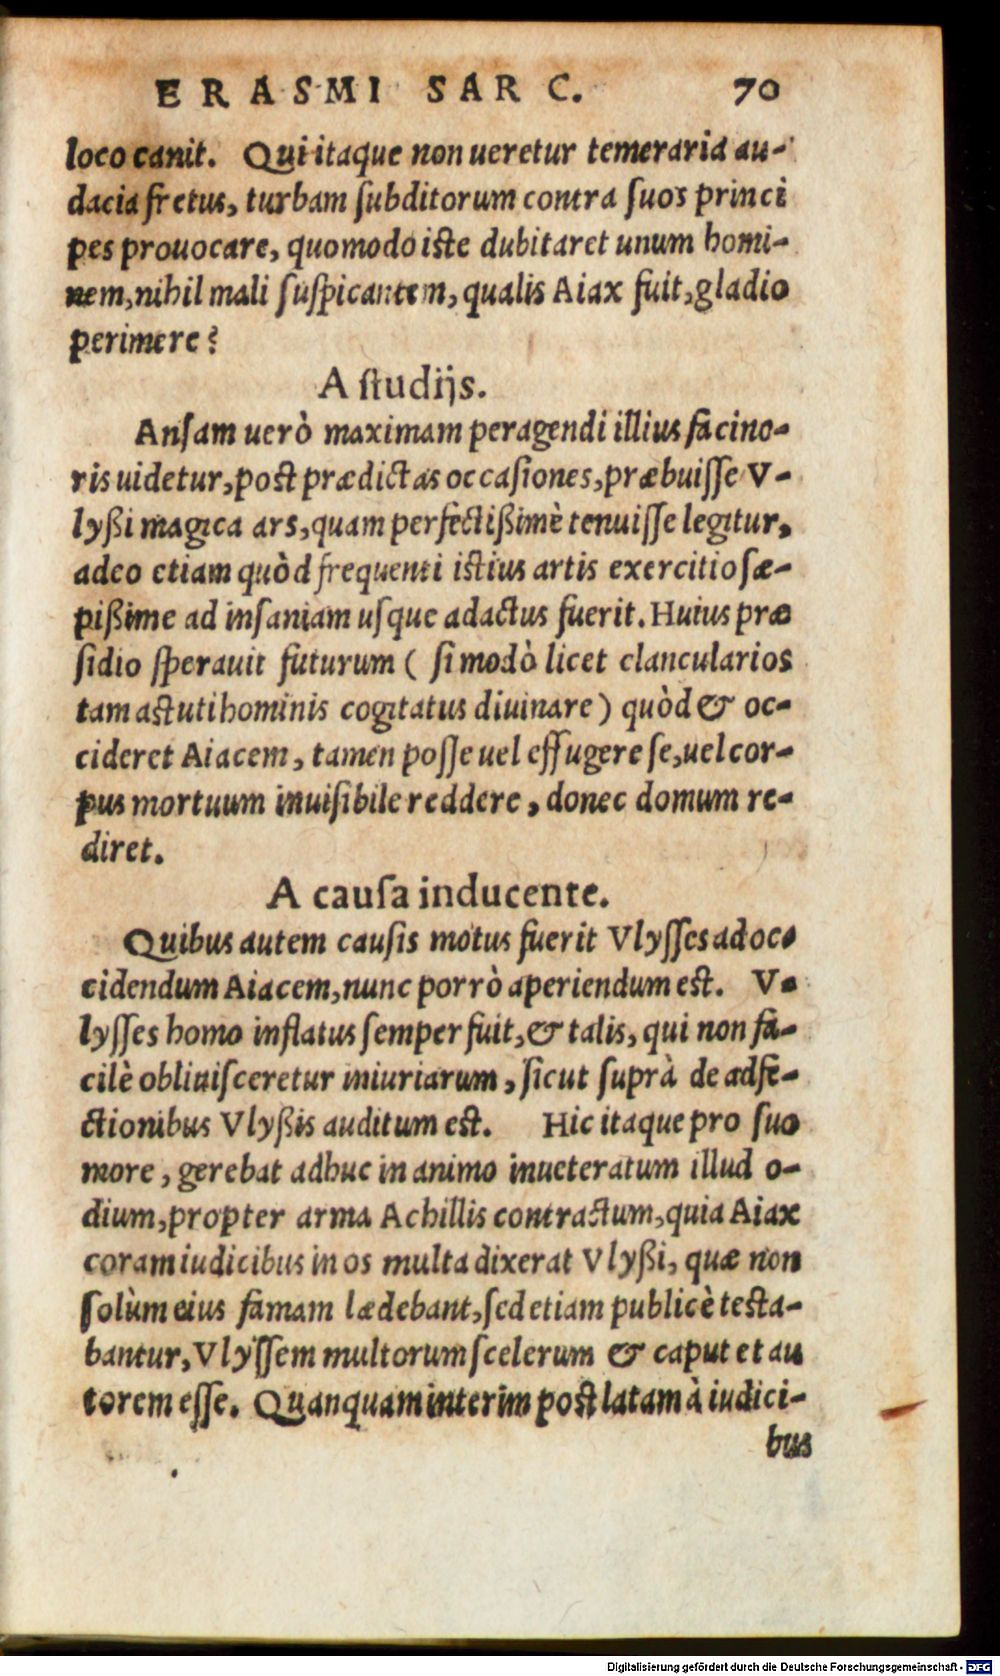 ERASMI SARC. 70
loco canit. Qui itaque non ueretur temeraria au-
dacia fretus, turbam ſubditorum contra ſuos princi
pes prouocare, quomodo iſte dubitaret unum homi-
nem, nihil mali ſuſpicantem, qualis Aiax fuit, gladio
perimere?
A ſtudijs.
Anſam uerò maximam peragendi illius facino-
ris uidetur, poſt prædictas occaſiones, præbuiſſe V-
lyßi magica ars, quam perfectißimè tenuiſſe legitur,
adeo etiam quòd frequenti iſtius artis exercitio ſæ-
pißime ad inſaniam uſque adactus fuerit. Huius præ
ſidio ſperauit futurum ( ſi modò licet clancularios
tam aſtuti hominis cogitatus diuinare) quòd & oc-
cideret Aiacem, tamen poſſe uel effugere ſe, uel cor-
pus mortuum inuiſibile reddere, donec domum re-
diret.
A cauſa inducente.
Quibus autem cauſis motus fuerit Vlyſſes ad oc-
cidendum Aiacem, nunc porrò aperiendum eſt. V-
lyſſes homo inflatus ſemper fuit, & talis, qui non fa-
cilè obliuiſceretur iniuriarum, ſicut ſuprà de adfe-
ctionibus Vlyßis auditum eſt. Hic itaque pro ſuo
more, gerebat adhuc in animo inueteratum illud o-
dium, propter arma Achillis contractum, quia Aiax
coram iudicibus in os multa dixerat Vlyßi, quæ non
ſolùm eius famam lædebant, ſed etiam publicè teſta-
bantur, Vlyſſem multorum ſcelerum & caput et au
torem eſſe. Quanquam interim poſt latam à iudici-
bus
Digitalisierung gefördert durch die Deutsche Forschungsgemeinschaft - DFG